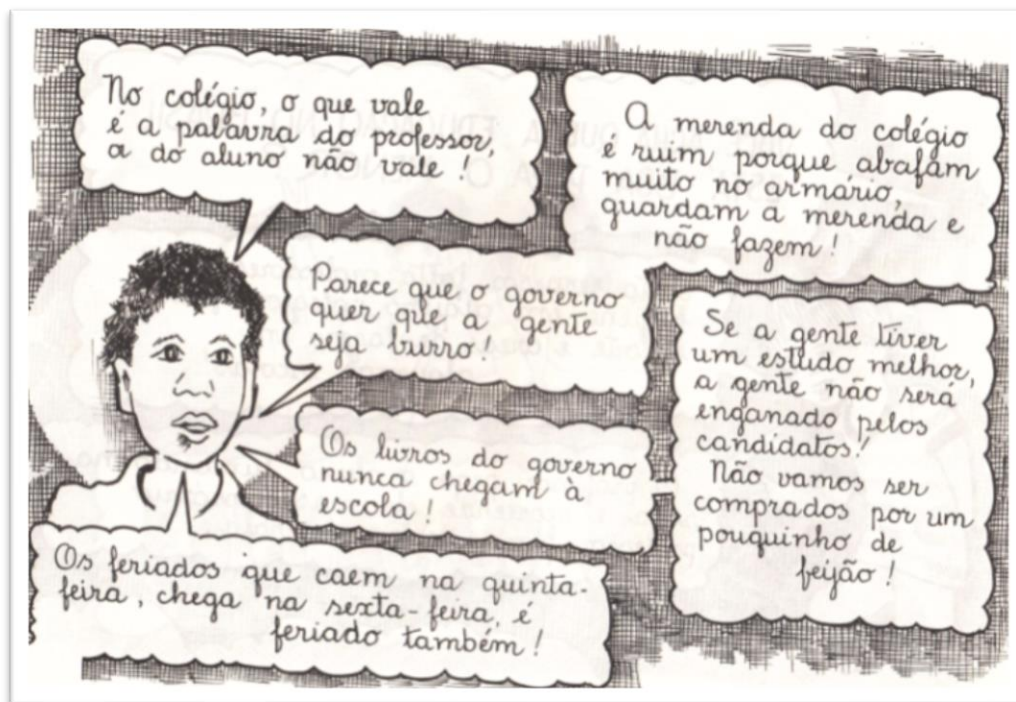 No colégio, o que vale
é a palavra do professor,
a do aluno não vale !
A merenda do colégio
é ruim porque abafam
muito no armário,
guardam a merenda e
não fazem !
Parece que o governo
quer que a gente
seja burro !
Se a gente tiver
um estudo melhor,
a gente não será
enganado pelos
candidatos !
Não vamos ser
comprados por um
pouquinho de
feijão !
Os livros do governo
nunca chegam à
escola !
Os feriados que caem na quinta-
feira, chega na sexta-feira, é
feriado também !